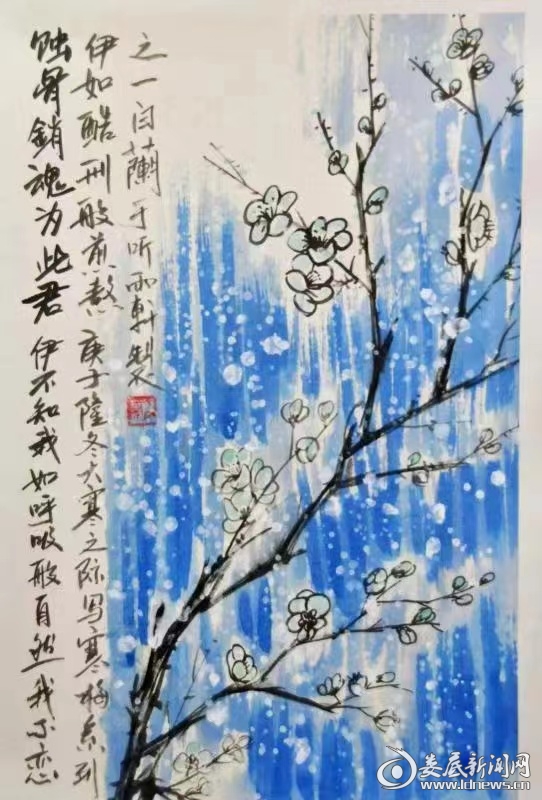 蚀骨銷魂为此君 伊不知我如呼吸般自然 我不恋
伊如酷刑般煎熬 庚子隆冬大寒之际写寒梅系列
之一白蘭于听雨軒製
娄底新闻网
www.ldnews.cn